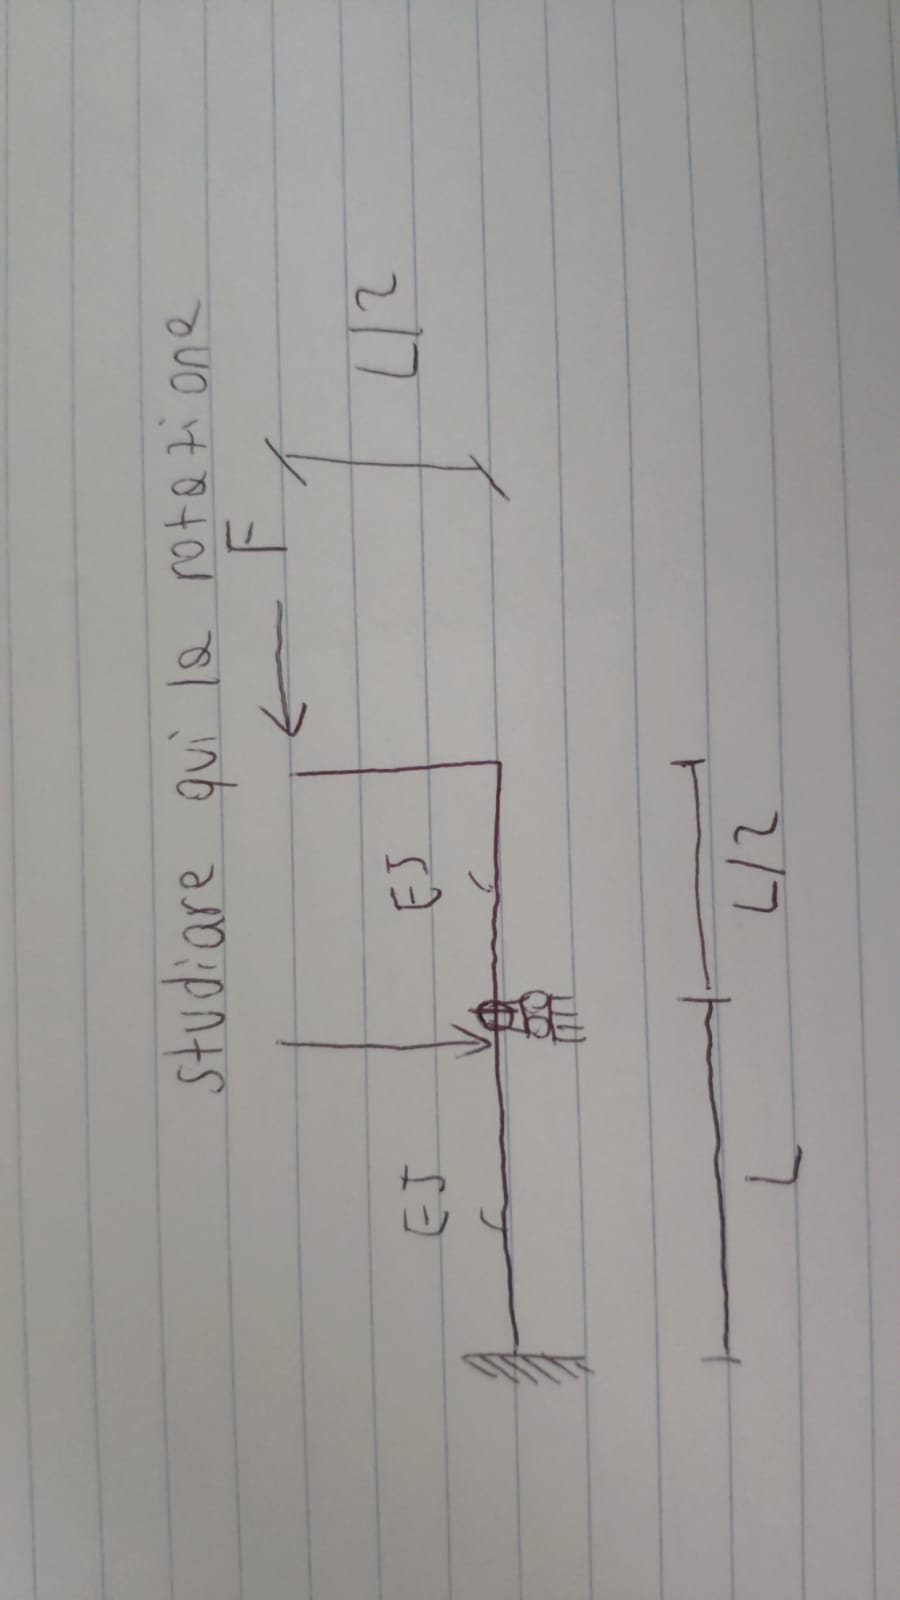 studiare qui la rotazione
F
L/2
EJ
EJ
L
L/2